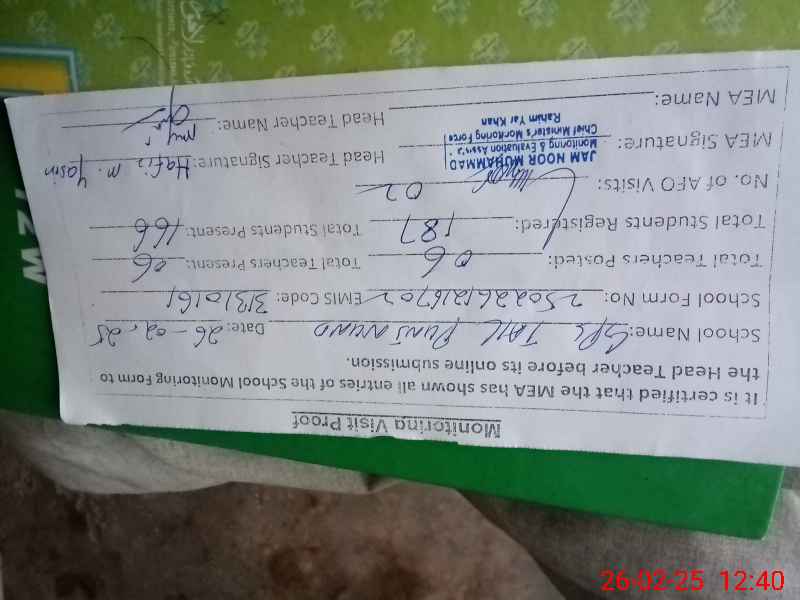 Monitoring Visit Proof
It is certified that the MEA has shown all entries of the School Monitoring Form to
the Head Teacher before its online submission.
School Name: GPS TAIL Date: 26-02-25
School Form No: EMIS Code: 31310161
Total Teachers Posted: 06 Total Teachers Present: 06
Total Students Registered: 187 Total Students Present: 166
No. of AFO Visits: 02
MEA Signature: Head Teacher Signature: Hafiz M. Yasin
JAM NOOR MUHAMMAD
Monitoring & Evaluation Assist
Chief Minister's Monitoring Force
Rahim Yar Khan
MEA Name: Head Teacher Name:
26-02-25 12:40